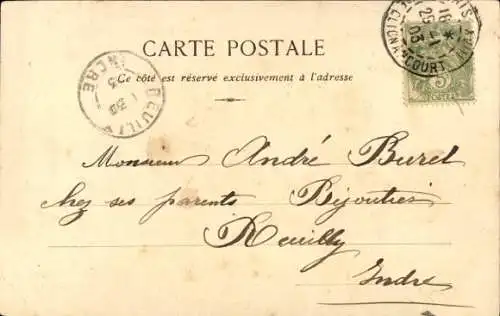 CARTE POSTALE
Ce côté est réservé exclusivement à l'adresse
REUILLY
INDRE
Monsieur André Buret
chez ses parents Bijoutier
Reuilly
Indre